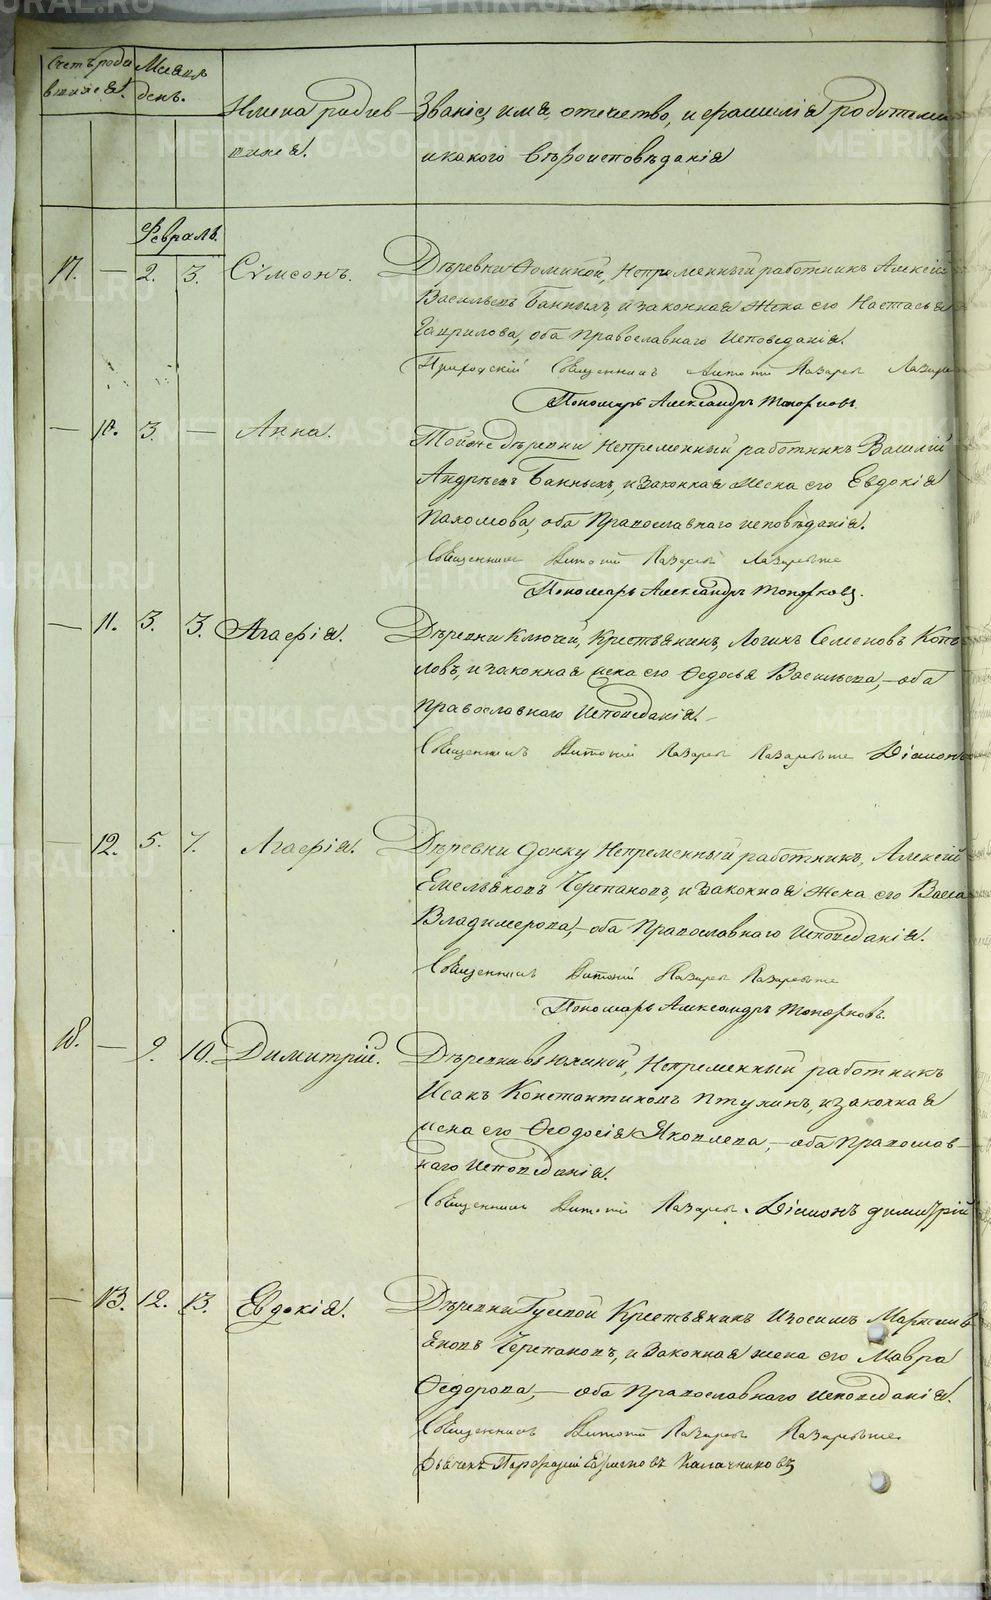 Счетъ роди
вшихся.
Месяцъ
день.
Имена родив
шихся.
Званіе, имя, отечество, и фамилія родителей
и какого вѣроисповѣданія
Февраль.
17. — 2. 3. Сѵмеонъ.
Дѣревни Фоминой, Непременный работникъ Алексей
Васильевъ Банныхъ, и законная Жена его Настасья
Гаврилова, оба Православнаго Исповеданія.
Приходскій Священникъ Антоній Лазарев
Пономарь Александръ Топорковъ.
— 10. 3. — Анна.
Тойже дѣревни Непременный работникъ Василій
Андрѣевъ Банныхъ, и законная Жена его Евдокія
Пахомова, оба Православнаго исповѣданія.
Священникъ Антоній Лазарев
Пономарь Александръ Топорковъ.
— 11. 3. 3. Агафія.
Дѣревни Ключей, Крестьянинъ, Логинъ Семеновъ Копы
ловъ, и законная жена его Федосья Васильева, — оба
Православнаго Исповеданія. —
Священникъ Антоній Лазарев Діаконъ
— 12. 5. 7. Агафія.
Дѣревни Непременный работникъ, Алексей
Емельяновъ Черепановъ, и законная Жена его Васса
Владимерова, — оба Православнаго Исповеданія.
Священникъ Антоній Лазарев
Пономарь Александръ Топорковъ.
18. — 9. 10. Димитрій.
Дѣревни Вьюхиной, Непременный работникъ
Исакъ Константиновъ Птухинъ, и законная
жена его Феодосія Яковлева, — оба Православ—
наго Исповеданія.
Священникъ Антоній Лазарев. Діаконъ Димитрій
— 13. 12. 13. Евдокія.
Дѣревни Гусевой Крестьянинъ Изосимъ Мартемь
яновъ Черепановъ, и законная жена его Мавра
Федорова, — оба Православнаго Исповеданія.
Священникъ Антоній Лазарев
Дьячекъ Порфирій Калачниковъ
METRIKI.GASO-URAL.RU